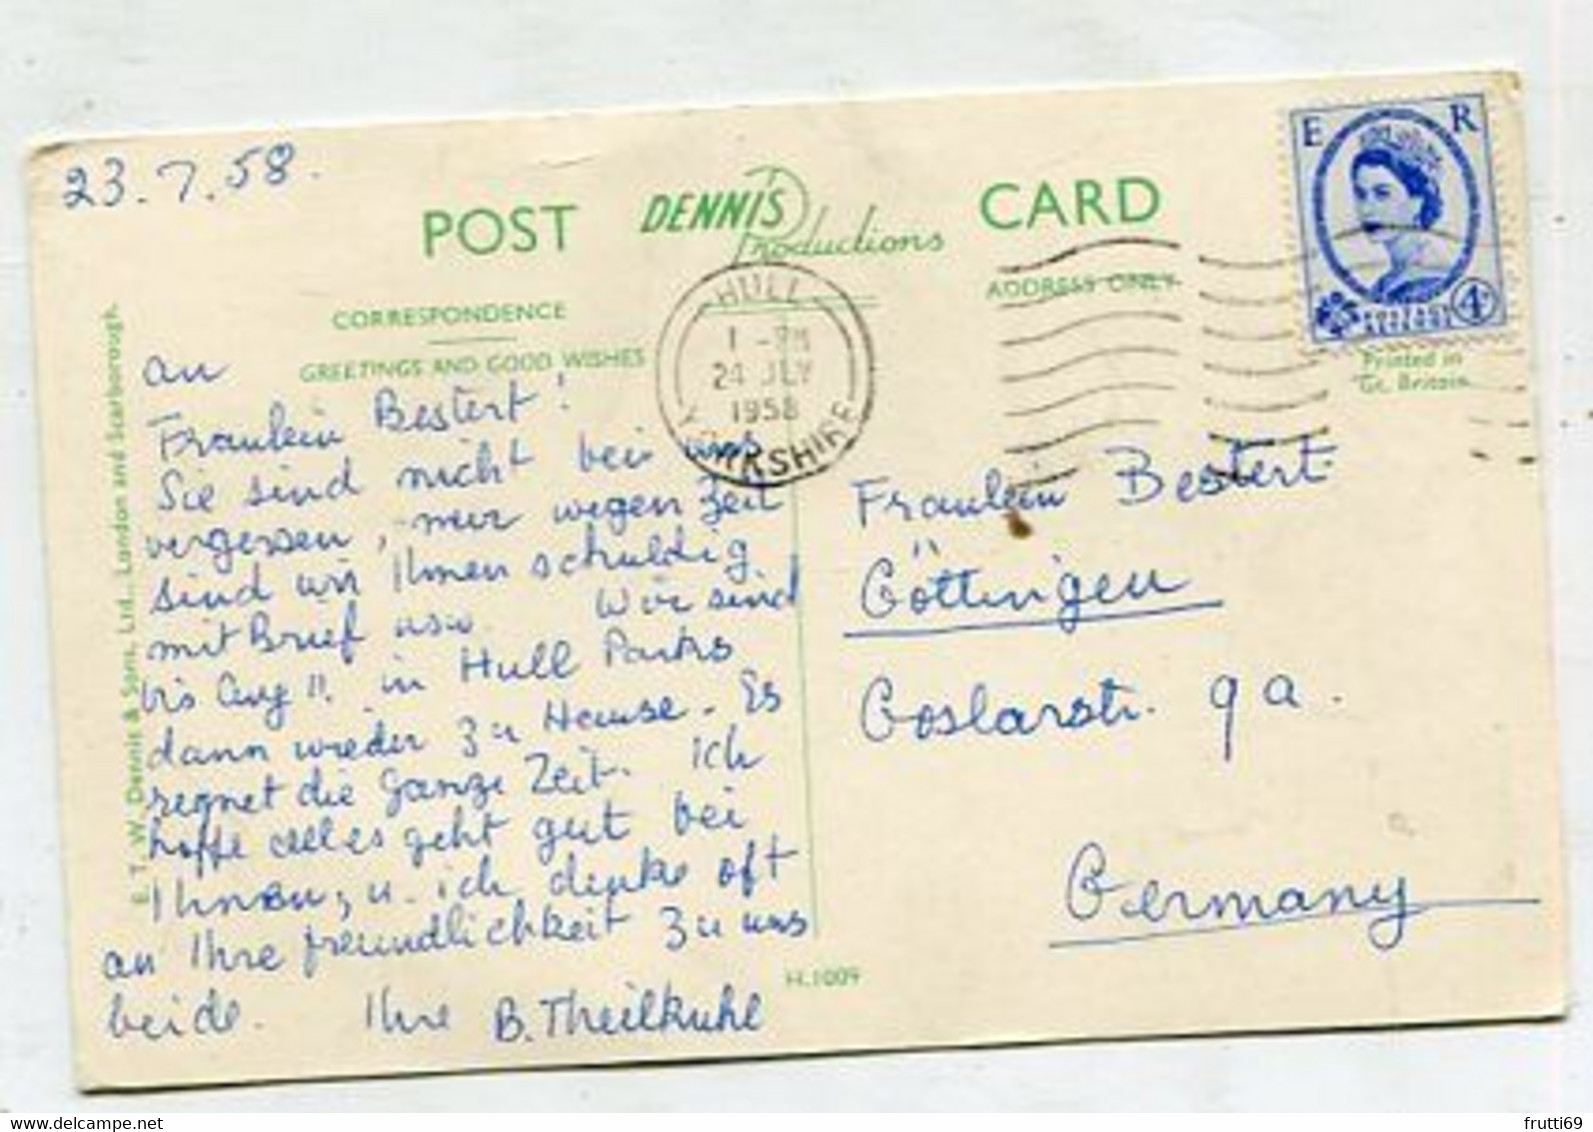 23.7.58.
POST DENNIS Productions CARD
CORRESPONDENCE
GREETINGS AND GOOD WISHES
ADDRESS ONLY
E R
POSTAGE REVENUE
4D
Printed in
Gt. Britain
HULL
1 - PM
24 JLY
1958
YORKSHIRE
E. T. W. Dennis & Sons, Ltd., London and Scarborough.
an
Fraulein Bestert!
Sie sind nicht bei uns
vergessen, nur wegen Zeit
sind wir Ihnen schuldig
mit Brief usw. Wir sind
bis Aug 11. in Hull
dann wieder zu Hause. Es
regnet die ganze Zeit. Ich
hoffe alles geht gut bei
Ihnen, u. ich denke oft
an Ihre freundlichkeit zu uns
beide. Ihre B. Theilkuhl
Fräulein Bestert
Göttingen
Goslarstr. 9a.
Germany
H.1009
www.delcampe.net
frutti69